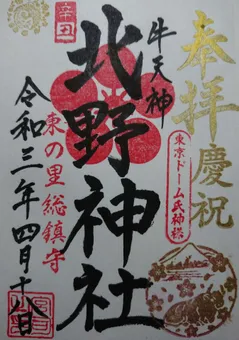 奉拝
慶祝
牛天神
東京ドーム氏神様
辛丑
北野神社
東の里総鎮守
令和三年四月十八日